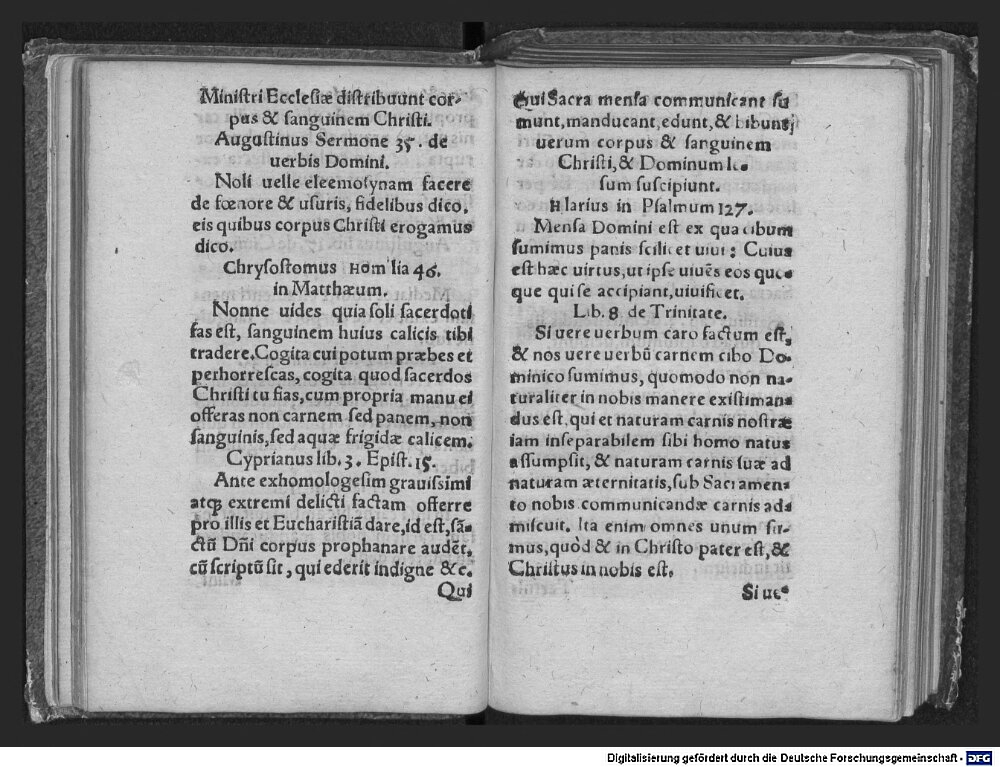 Ministri Ecclesiæ distribuunt cor-
pus & sanguinem Christi.
Augustinus Sermone 35. de
uerbis Domini.
Noli uelle eleemosynam facere
de fœnore & usuris, fidelibus dico,
eis quibus corpus Christi erogamus
dico.
Chrysostomus Homilia 46.
in Matthæum.
Nonne uides quia soli sacerdoti
fas est, sanguinem huius calicis tibi
tradere. Cogita cui potum præbes et
perhorrescas, cogita quod sacerdos
Christi tu fias, cum propria manu ei
offeras non carnem sed panem, non
sanguinis, sed aquæ frigidæ calicem.
Cyprianus lib. 3. Epist. 15.
Ante exhomologesim grauissimi
atqꝫ extremi delicti factam offerre
pro illis et Eucharistiā dare, id est, sā-
ctū Dn̄i corpus prophanare audēt,
cū scriptū sit, qui ederit indigne &c.
Qui
Qui Sacra mensa communicant su
munt, manducant, edunt, & bibunt
uerum corpus & sanguinem
Christi, & Dominum Ie-
sum suscipiunt.
Hlarius in Psalmum 127.
Mensa Domini est ex qua cibum
sumimus panis scilicet uiui: Cuius
est hæc uirtus, ut ipse uiuēs eos quo-
que qui se accipiant, uiuificet.
Lib. 8 de Trinitate.
Si uere uerbum caro factum est,
& nos uere uerbū carnem cibo Do-
minico sumimus, quomodo non na-
turaliter in nobis manere existiman-
dus est, qui et naturam carnis nostræ
iam inseparabilem sibi homo natus
assumpsit, & naturam carnis suæ ad
naturam æternitatis, sub Sacramen-
to nobis communicandæ carnis ad-
miscuit. Ita enim omnes unum su-
mus, quòd & in Christo pater est, &
Christus in nobis est.
Si ue-
Digitalisierung gefördert durch die Deutsche Forschungsgemeinschaft - DFG